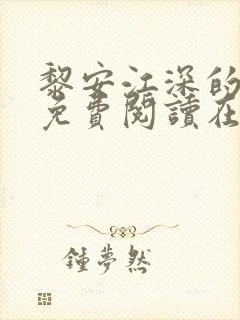 黎安江深的
免費閱讀在
鍾夢然